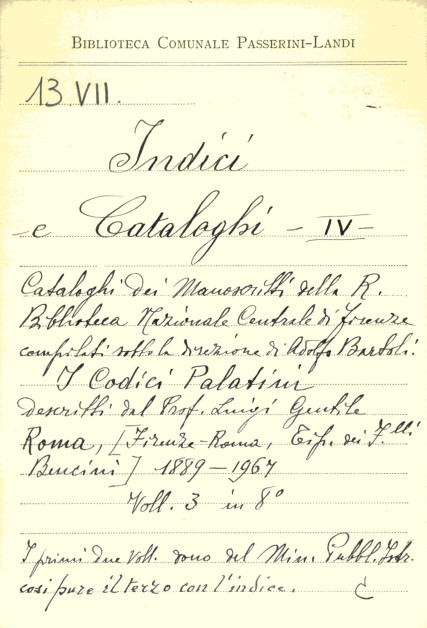 BIBLIOTECA COMUNALE PASSERINI-LANDI
13 VII.
Indici
e Cataloghi - IV -
Cataloghi dei Manoscritti della R.
Biblioteca Nazionale Centrale di Firenze
compilati sotto la direzione di Adolfo Bartoli.
I Codici Palatini
descritti dal Prof. Luigi Gentile
Roma, [Firenze-Roma, Tip. dei F.lli
Bencini] 1889-1967
Voll. 3 in 8°
I primi due voll. dono del Min. Pubbl. Istr.
così pure il terzo con l'indice.